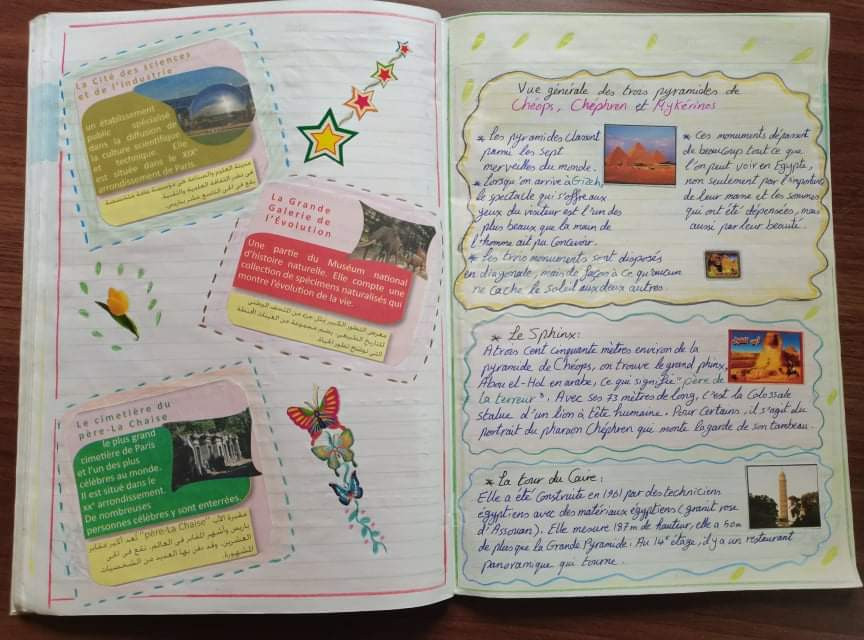 La Cité des sciences
et de l'Industrie
un établissement
public spécialisé
dans la diffusion de
la culture scientifique
et technique. Elle
est située dans le XIXᵉ
arrondissement de Paris.
مدينة العلوم والصناعة هي مؤسسة عامة متخصصة
في نشر الثقافة العلمية والتقنية.
تقع في الحي التاسع عشر بباريس.
La Grande
Galerie de
l'Évolution
Une partie du Muséum national
d'histoire naturelle. Elle compte une
collection de spécimens naturalisés qui
montre l'évolution de la vie.
معرض التطور الكبير يمثل جزء من المتحف الوطني
للتاريخ الطبيعي. يضم مجموعة من العينات المحنطة
التي توضح تطور الحياة.
Le cimetière du
père-La Chaise
le plus grand
cimetière de Paris
et l'un des plus
célèbres au monde.
Il est situé dans le
xxᵉ arrondissement.
De nombreuses
personnes célèbres y sont enterrées.
مقبرة الأب "père-La Chaise" تعد أكبر مقابر
باريس وأشهر المقابر في العالم. تقع في الحي
العشرين. وقد دفن بها العديد من الشخصيات
المشهورة.
Vue générale des trois pyramides de
Chéops, Chéphren et Mykérinos
* les pyramides classent
parmi les sept
merveilles du monde.
* Lorsqu'on arrive à Grizeh,
le spectacle qui s'offre aux
yeux du visiteur est l'un des
plus beaux que la main de
l'homme ait pu concevoir.
* Les trois monuments sont disposés
en diagonale, mais de façon à ce qu'aucun
ne cache le soleil aux deux autres.
* Ces monuments dépassent
de beaucoup tout ce que
l'on peut voir en Egypte,
non seulement par l'importance
de leur masse et les sommes
qui ont été dépensées, mais
aussi par leur beauté.
* Le Sphinx:
A trois cent cinquante mètres environ de la
pyramide de Chéops, on trouve le grand phinx,
Abou el-Hol en arabe, ce qui signifie "père de
la terreur". Avec ses 73 mètres de long, c'est la colossale
statue d'un lion à tête humaine. Pour certains, il s'agit du
portrait du pharaon Chéphren qui monte la garde de son tombeau.
* La tour du Caire:
Elle a été construite en 1961 par des techniciens
égyptiens avec des matériaux égyptiens (granit rose
d'Assouan). Elle mesure 187m de hauteur, elle a 50m
de plus que la Grande Pyramide. Au 14ᵉ étage, il y a un restaurant
panoramique qui tourne.